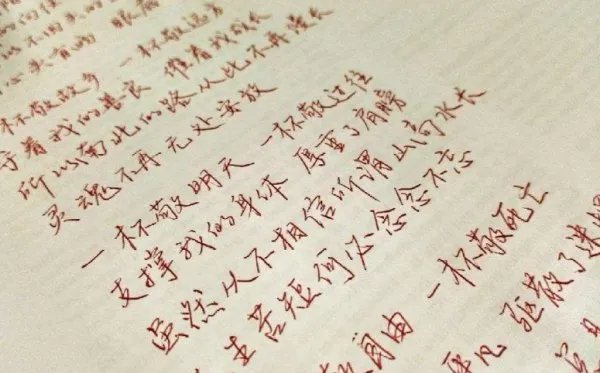 头有雨 眼底
杯敬故乡 一杯敬远方
守着我的善良 催着我成长
所以南北的路从此不再漫长
灵魂不再无处安放
一杯敬明天 一杯敬过往
支撑我的身体 厚重了肩膀
虽然从不相信所谓山高水长
生苦短何必念念不忘
敬自由 一杯敬死亡
平凡 驱散了迷